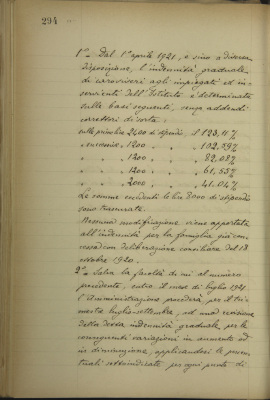 294
1°= Dal 1° aprile 1921, e sino a diversa
disposizione, l'indennità graduale
di caroviveri agli impiegati ed in-
servienti dell'Istituto è determinata
sulle basi seguenti, senza addendi
correttori di sorta:
sulle prime lire 2400 di stipendio, il 123.11%
" successive " 1200 " " 102.59%
" " 1200 " " 82.08%
" " 1200 " " 61.55%
" " 2000 " " 41.04%
Le somme eccedenti le lire 8000 di stipendio
sono trascurate.
Nessuna modificazione viene apportata
all'indennità per la famiglia già con-
cessa con deliberazione consiliare del 18
ottobre 1920.
2°= Salva la facoltà di cui al numero
precedente, entro il mese di luglio 1921
l'Amministrazione procederà, per il tri-
mestre luglio-settembre, ad una revisione
della detta indennità graduale, per le
conseguenti variazioni in aumento od
in diminuzione, applicandosi le percen-
tuali sottoindicate per ogni punto di